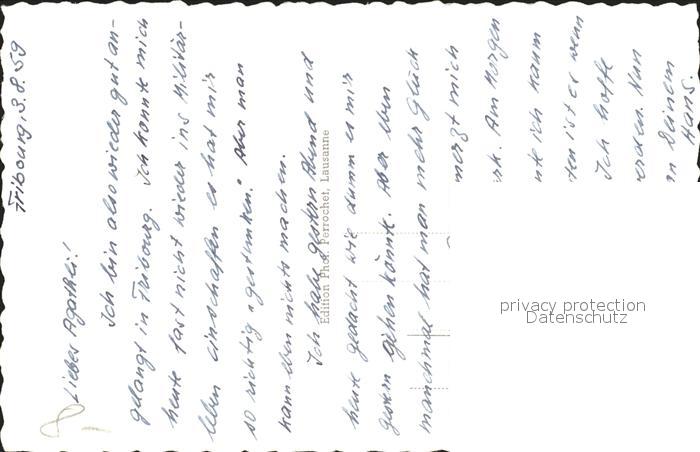 Fribourg, 3.8.59
Liebes Agathli!
Ich bin also wieder gut an-
gelangt in Fribourg. Ich konnte mich
heute fast nicht wieder ins Militär-
leben einschaffen es hat mir
so richtig "gestunken." Aber man
kann eben nichts machen.
Ich habe gestern Abend und
heute gedacht wie dumm es mir
gestern gehen könnte. Aber eben
manchmal hat man mehr Glück
mich
Am Morgen
ich kaum
ist es wenn
Ich hoffe
Nun
Deinem
Hans.
Edition Phot. Perrochet, Lausanne
privacy protection
Datenschutz